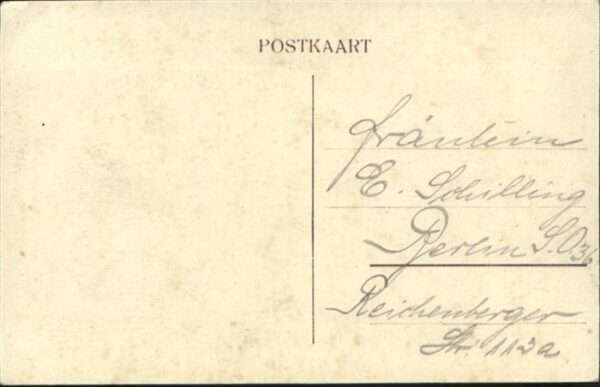 POSTKAART
Fräulein
E. Schilling
Berlin S.O 36
Reichenberger
Str. 113a